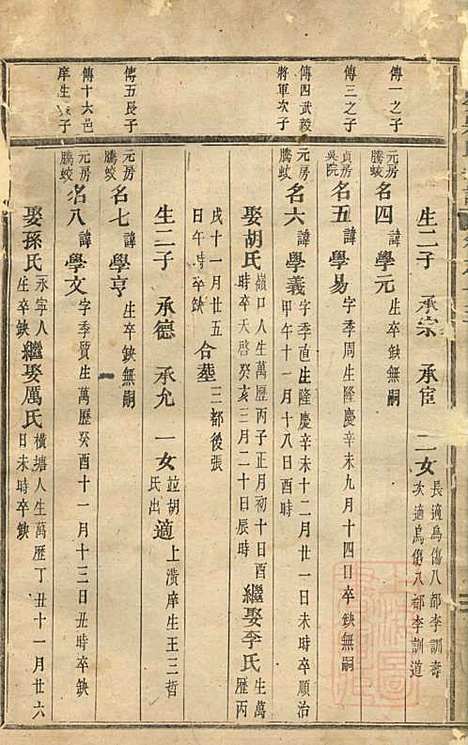 傳一之子
生二子 承宗 承宦 二女 長適烏傷八都李訓壽
次適烏傷八都李訓道
元房騰蛟 名四 諱學元 生卒鈌無嗣
傳三之子
貞房吳院 名五 諱學易 字季周生隆慶辛未九月十四日卒鈌無嗣
傳四武毅
將軍次子
元房騰蛟 名六 諱學義 字季直生隆慶辛未十二月廿一日未時卒順治
甲午十一月十八日酉時
娶胡氏 嶺口人生萬歷丙子正月初十日酉
時卒天啓癸亥三月二十日辰時 繼娶李氏 生萬歷丙
戌十一月廿五
日午時卒鈌 合塟 三都後張
生二子 承德 承允 一女 竝胡氏出 適 上潢庠生王三哲
傳五長子
元房騰蛟 名七 諱學亨 生卒鈌無嗣
傳十六邑
庠生 子
元房騰蛟 名八 諱學文 字季質生萬歷癸酉十一月十三日丑時卒鈌
娶孫氏 永寧人生卒鈌 繼娶厲氏 橫塘人生萬歷丁丑十一月廿六
日未時卒鈌